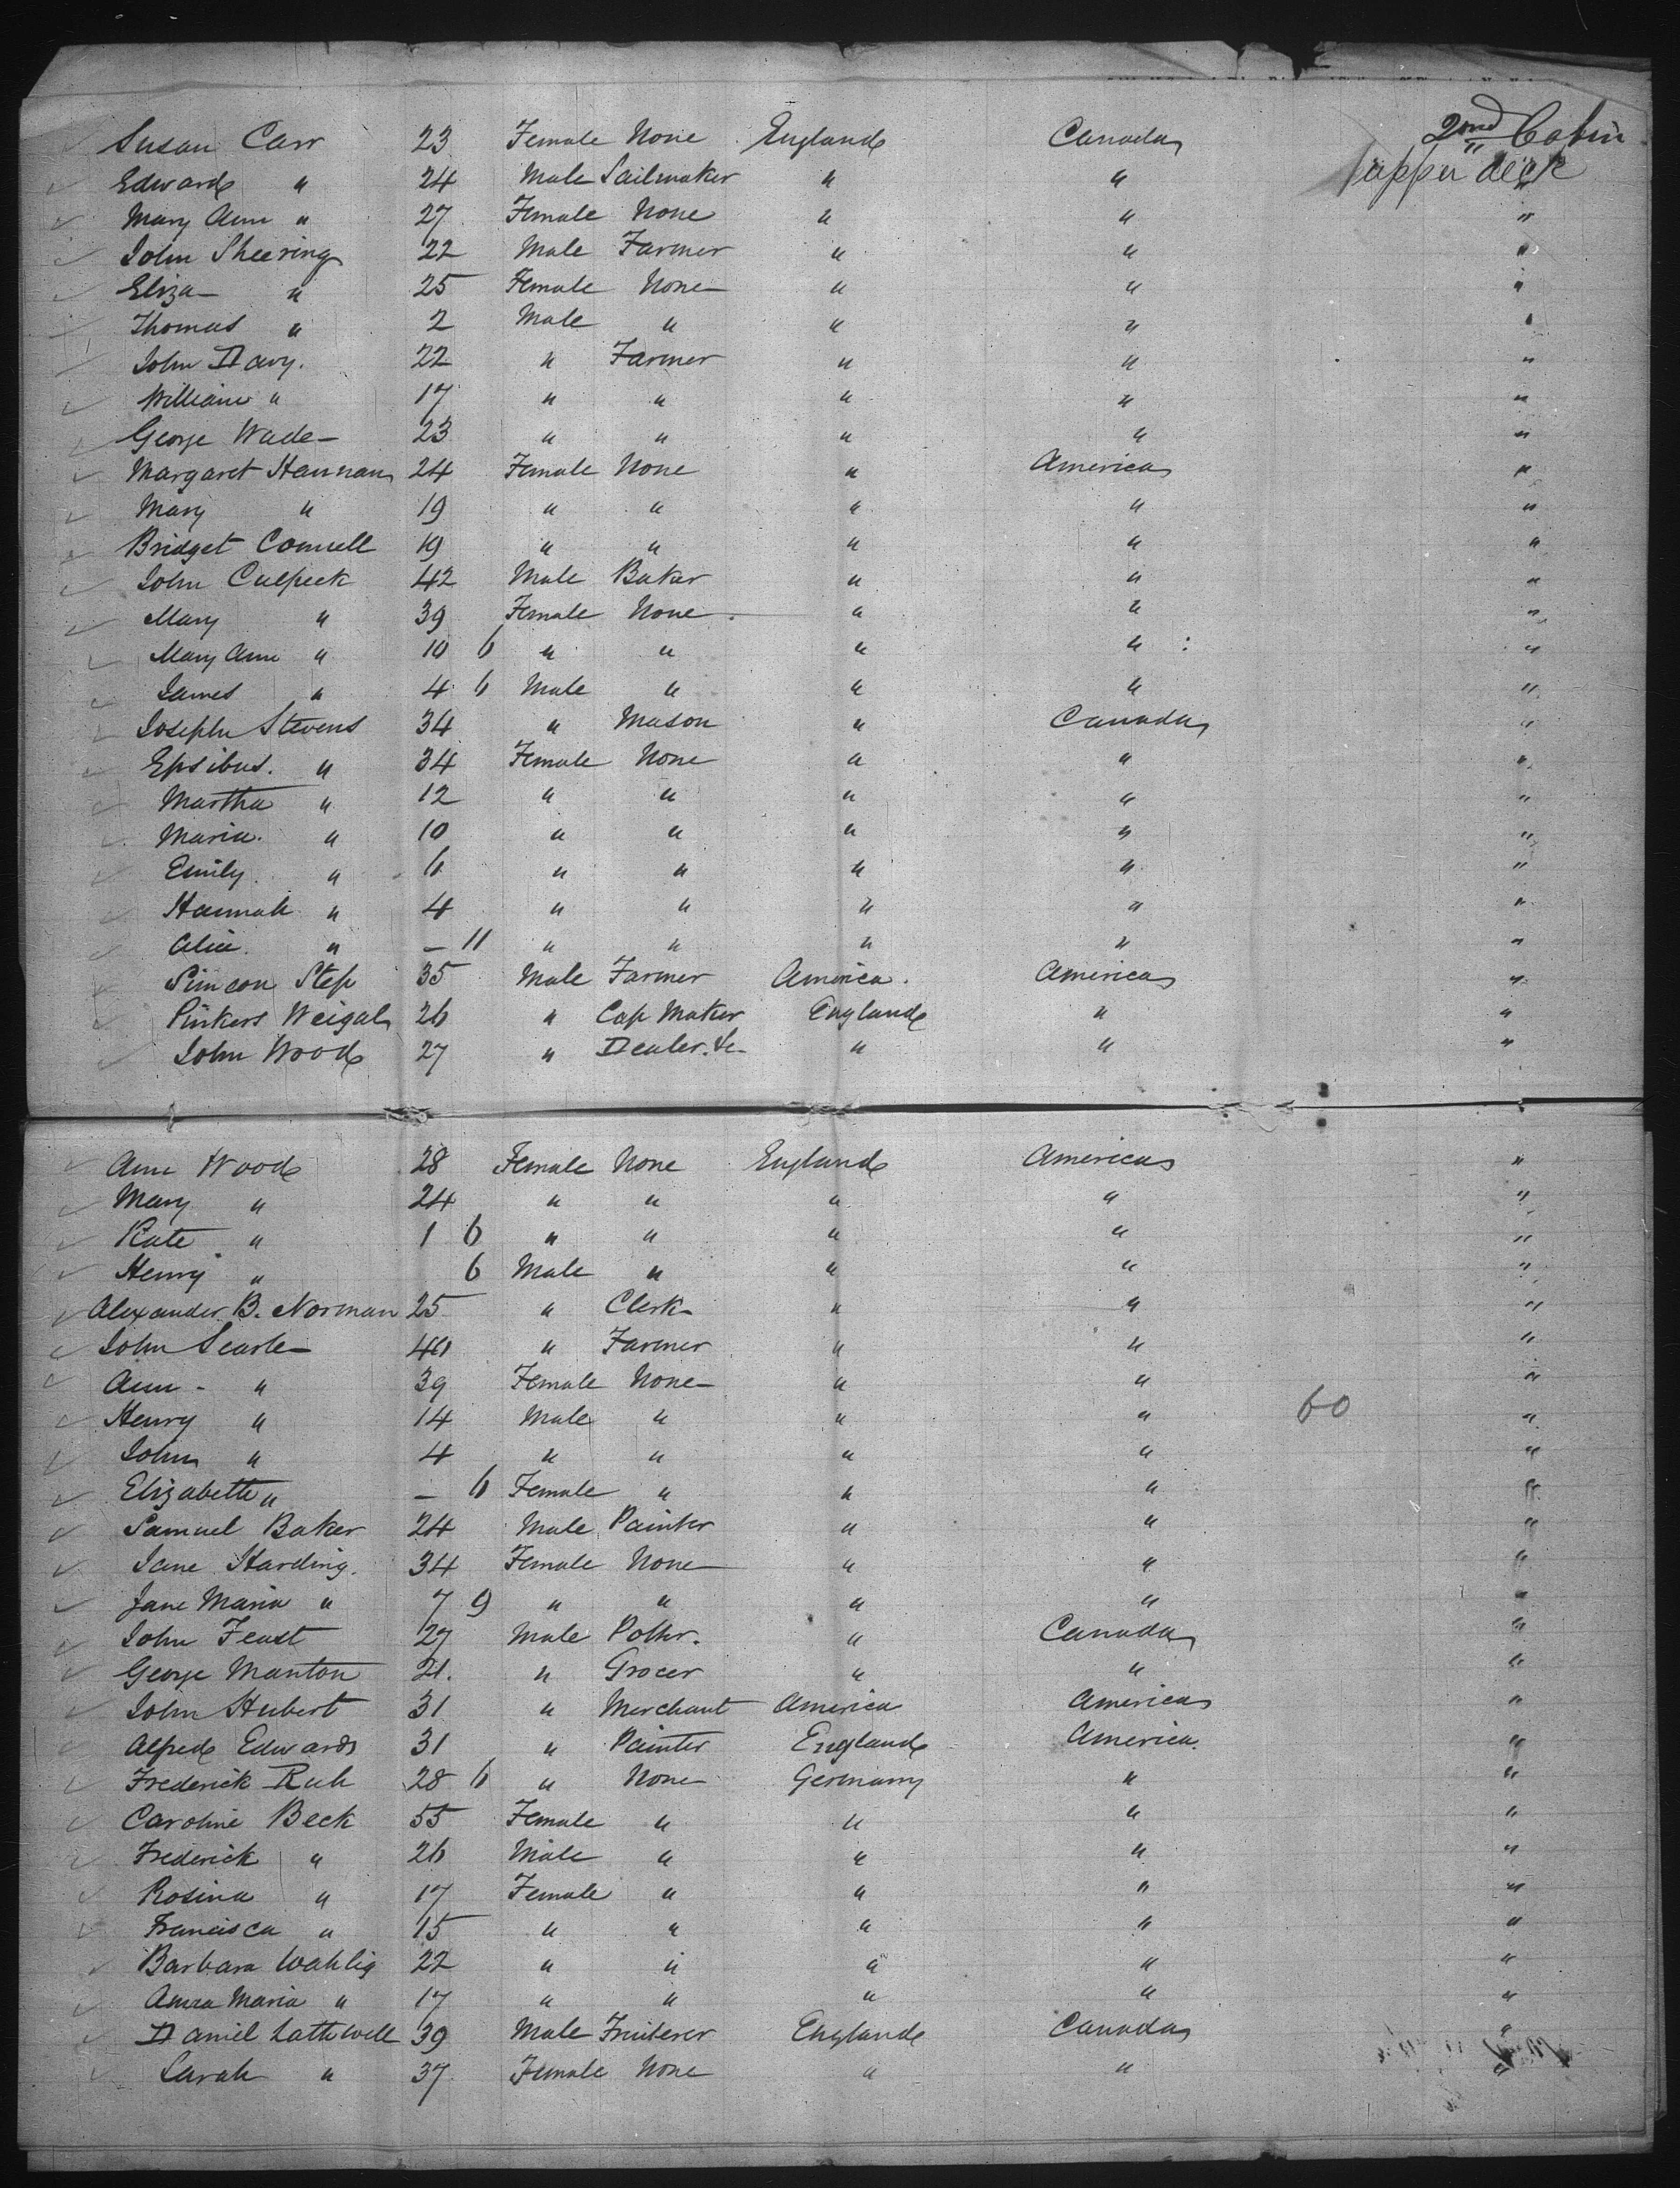 Susan Carr 23 Female None England Canada 2nd Cabin
Edward " 24 Male Sailmaker " " upper deck "
Mary Ann " 27 Female None " " "
John Sheering 22 Male Farmer " " "
Eliza " 25 Female None " " "
Thomas " 2 Male " " " "
John Davy. 22 " Farmer " " "
William " 17 " " " " "
George Wade 23 " " " " "
Margaret Hannan 24 Female None " America "
Mary " 19 " " " " "
Bridget Connell 19 " " " " "
John Culpeck 42 Male Baker " " "
Mary " 39 Female None " " "
Mary Ann " 10 6 " " " " "
James " 4 6 Male " " " "
Joseph Stevens 34 " Mason " Canada "
Epsibus. " 34 Female None " " "
Martha " 12 " " " " "
Maria. " 10 " " " " "
Emily " 6 " " " " "
Hannah " 4 " " " " "
Alice. " – 11 " " " " "
Simeon Step 35 Male Farmer America. America "
Pinkers Weigal 26 " Cap Maker England " "
John Wood 27 " Dealer &c " " "
Ann Wood 28 Female None England America "
Mary " 24 " " " " "
Kate " 1 6 " " " " "
Henry " 6 Male " " " "
Alexander B. Norman 25 " Clerk " " "
John Searle 40 " Farmer " " "
Ann " 39 Female None " " "
Henry " 14 Male " " " 60 "
John " 4 " " " " "
Elizabeth " – 6 Female " " " "
Samuel Baker 24 Male Painter " " "
Jane Harding. 34 Female None " " "
Jane Maria " 7 9 " " " " "
John Feast 27 Male Potter. " Canada "
George Manton 21. " Grocer " " "
John Hubert 31 " Merchant America America "
Alfred Edwards 31 " Painter England America. "
Frederick Ruh 28 6 " None Germany " "
Caroline Beck 55 Female " " " "
Frederick " 26 Male " " " "
Rosina " 17 Female " " " "
Francisca " 15 " " " " "
Barbara Wahlig 22 " " " " "
Anna Maria " 17 " " " " "
Daniel Lattwell 39 Male Fruiterer England Canada "
Sarah " 37 Female None " " "